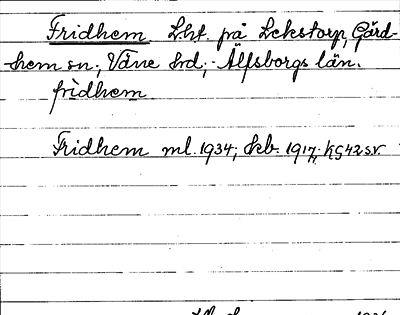 Fridhem Lht. på Lekstorp, Gärd-
hem sn., Väne hd., Älfsborgs län.
frìdhem
Fridhem ml. 1934; Skb 1917; KG 42 sv.